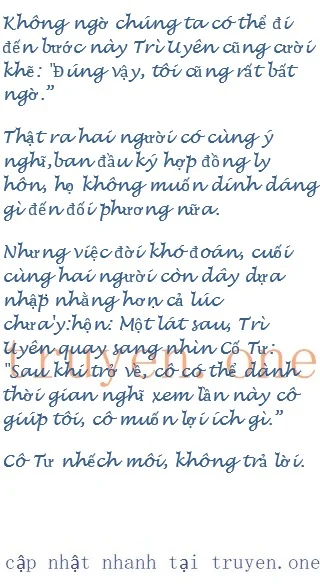 Không ngờ chúng ta có thể đi
đến bước này Trì Uyên cũng cười
khẽ: "Đúng vậy, tôi cũng rất bất
ngờ.”
Thật ra hai người có cùng ý
nghĩ,ban đầu ký hợp đồng ly
hôn, họ không muốn dính dáng
gì đến đối phương nữa.
Nhưng việc đời khó đoán, cuối
cùng hai người còn dây dưa
nhập nhằng hơn cả lúc
chưa'y:hộn: Một lát sau, Trì
Uyên quay sang nhìn Cố Tư:
truyen.one
"Sau khi trở về, cô có thể dành
thời gian nghĩ xem lần này cô
giúp tôi, cô muốn lợi ích gì.”
Cô Tư nhếch môi, không trả lời.
cập nhật nhanh tại truyen.one